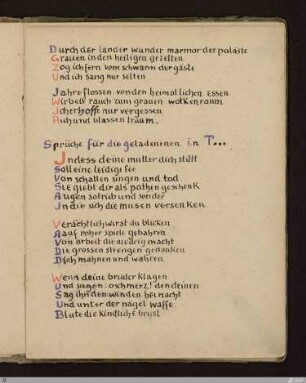 Durch der länder wunder marmor der paläste
Grauen in den heiligen gezelten
Zog ich fern vom schwarm der gäste
Und ich sang nur selten
Jahre flossen · von der heimatlichen essen
Wirbelt rauch zum grauen wolkenraum
Ich erhoffe nur vergessen
Ruh und blassen traum.
Sprüche für die geladenenen in T...
Indess deine mutter dich stillt
Soll eine leidige fee
Von schatten singen und tod
Sie giebt dir als pathengeschenk
Augen so trüb und sonder
In die sich die musen versenken.
Verächtlich wirst du blicken
Auf roher spiele gebahren
Vor arbeit die niedrig macht
Die grossen strengen gedanken
Dich mahnen und wahren.
Wenn deine brüder klagen
Und sagen: o schmerz! den deinen
Sag ihn den winden bei nacht
Und unter der nägel waffe
Blute die kindliche brust